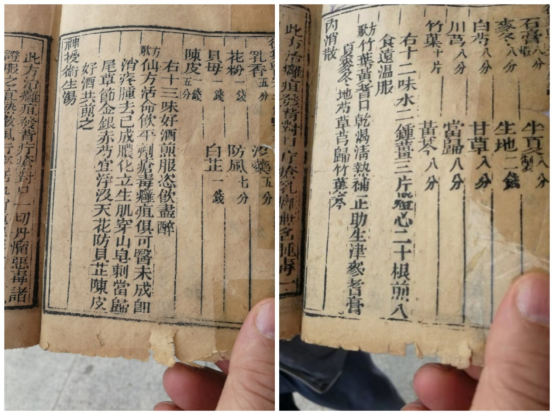 乳香五分 沒藥五分
花粉一錢 防風七分
貝母一錢 白芷一錢
陳皮一錢
右十三味好酒煎服恣飲盡醉
歌方仙方活命飲平劑瘡毒癰疽俱可醫未成即
消潰腫去已成膿化立生肌穿山皂刺當歸
尾草節金銀赤芍宜浮沒天花防貝芷陳皮
好酒共煎之
神授衛生湯
此方治癰疽發背疔瘡對口一切丹瘤惡毒諸
證服之
石膏八分 半夏製八分
麥冬八分 生地一錢
白芍八分 甘草八分
川芎八分 當歸八分
竹葉十片 黃芩八分
右十二味水二鍾薑三片燈心二十根煎八
食遠溫服
歌方竹葉黃芪口乾渴清熱補正助生津參芪膏
夏麥冬地芍草芎歸竹葉芩
內消散
此方治癰疽發背對口疔瘡乳癰無名腫毒一